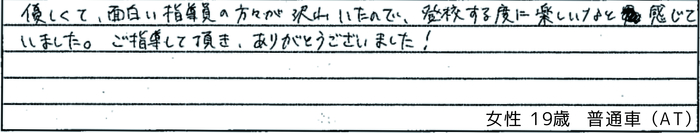 優しくて、面白い指導員の方々が沢山いたので、登校する度に楽しいなと感じて
いました。ご指導して頂き、ありがとうございました！
女性 19歳 普通車（AT）